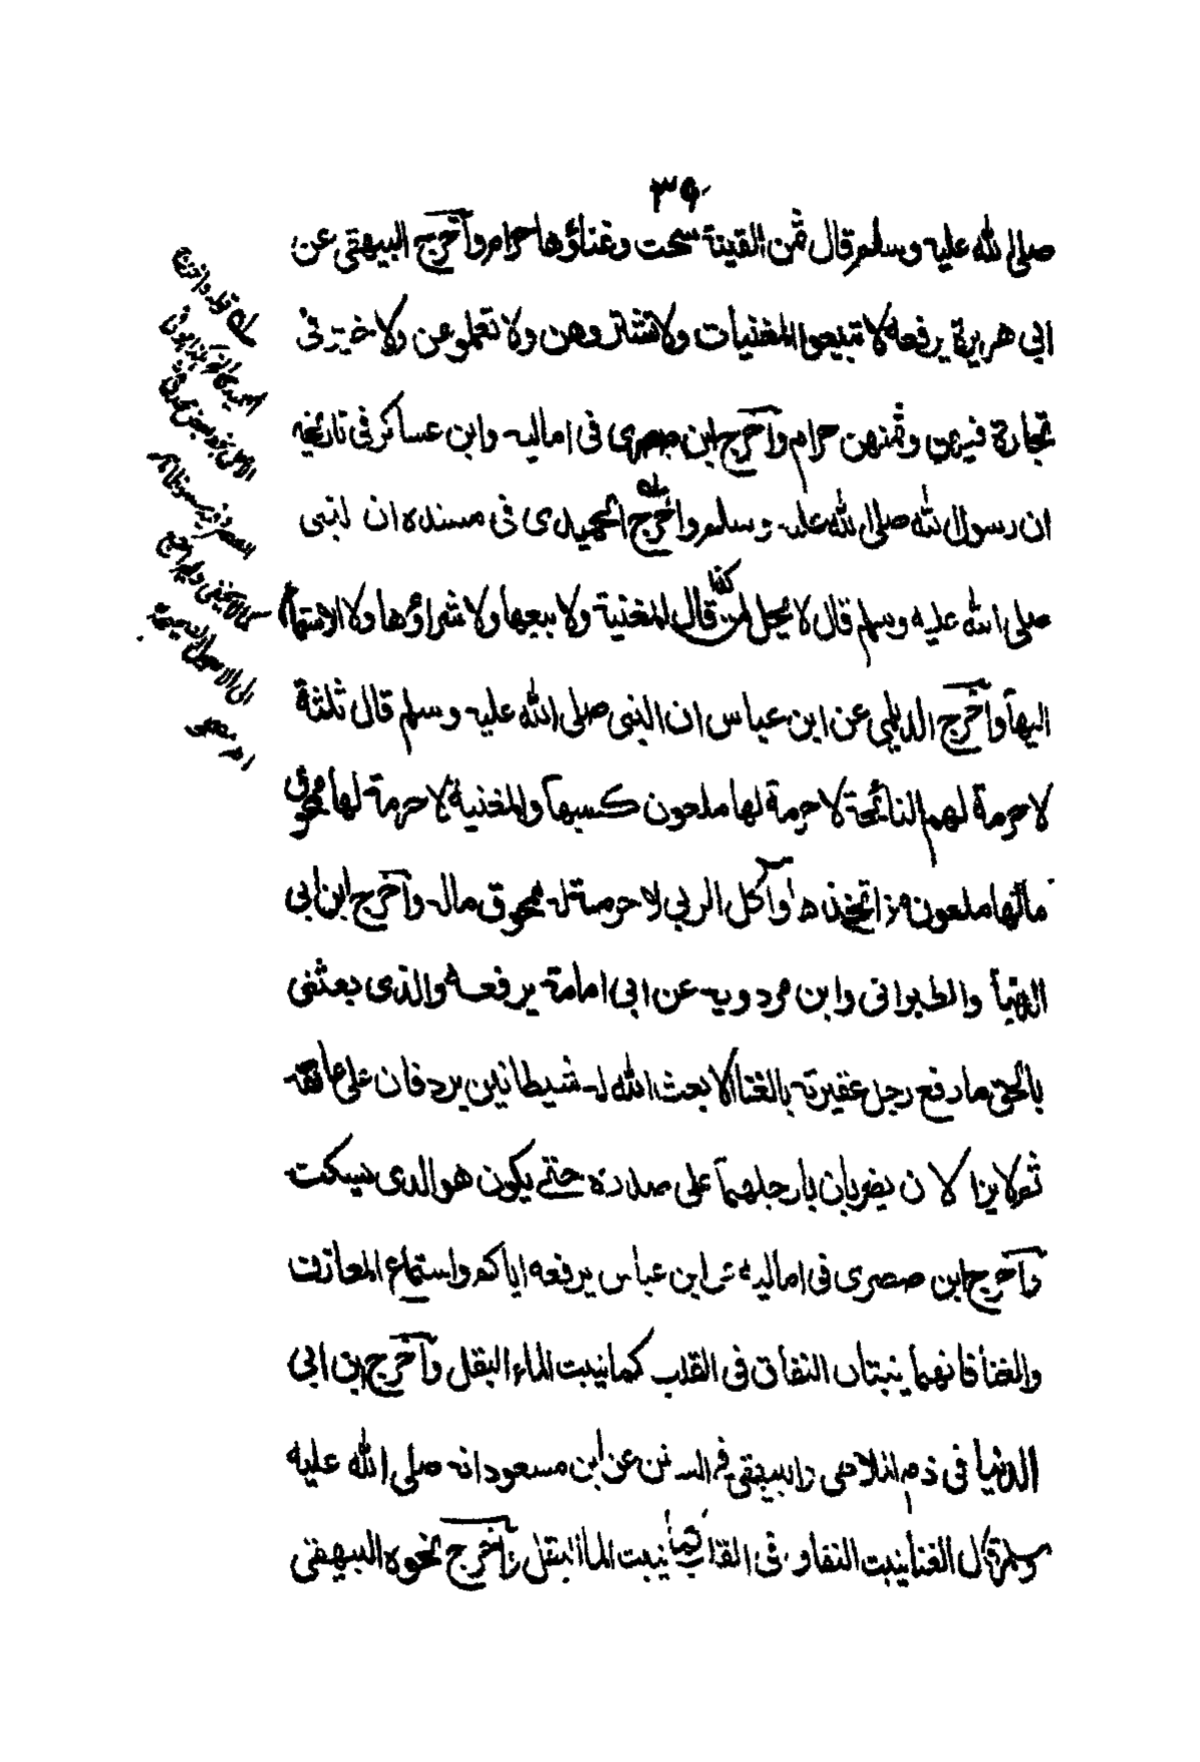 ٣٩
صلى الله عليه وسلم قال ثمن القينة سحت وغناؤها حرام وآخرج البيهقى عن
ابى هريرة يرفعه لا تبيعوا المغنيات ولا تشتروهن ولا تعلموهن ولا خير فى
تجارة فيهن وثمنهن حرام وآخرج ابن صصرى فى اماليه وابن عساكر فى تاريخه
ان رسول الله صلى الله عليه وسلم وآخرج الحميدى فى مسنده ان النبى
صلى الله عليه وسلم قال لا يحل ثمن المغنية ولا بيعها ولا شراؤها ولا الاستماع
اليها وآخرج الديلمى عن ابن عباس ان النبى صلى الله عليه وسلم قال ثلثة
لا حرمة لهم النائحة لا حرمة لها ملعون كسبها والمغنية لا حرمة لها ممحوق
مالها ملعون من اتخذها وآكل الربى لا حرمة له ممحوق ماله وآخرج ابن ابى
الدنيا والطبرانى وابن مردويه عن ابى امامة يرفعه والذى بعثنى
بالحق ما رفع رجل عقيرته بالغنا الا بعث الله له شيطانين يردفان على عاتقه
ثم لا يزالان يضربان بارجلهما على صدره حتى يكون هو الذى يسكت
وآخرج ابن صصرى فى اماليه عن ابن عباس يرفعه اياكم واستماع المعازف
والغنا فانهما ينبتان النفاق فى القلب كما ينبت الماء البقل وآخرج ابن ابى
الدنيا فى ذم الملاهى والبيهقى فى السنن عن ابن مسعود انه صلى الله عليه
وسلم قال الغنا ينبت النفاق فى القلب كما ينبت الما البقل وآخرج نحوه البيهقى
قوله واخرج